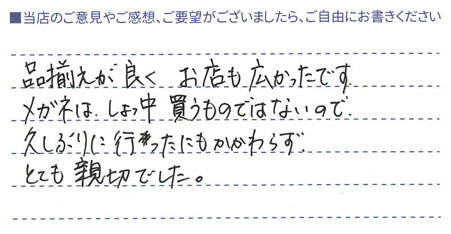 ■当店のご意見やご感想、ご要望がございましたら、ご自由にお書きください
品揃えが良く お店も広かったです
メガネは、しょっ中買うものではないので、
久しぶりに行ったにもかかわらず、
とても親切でした。